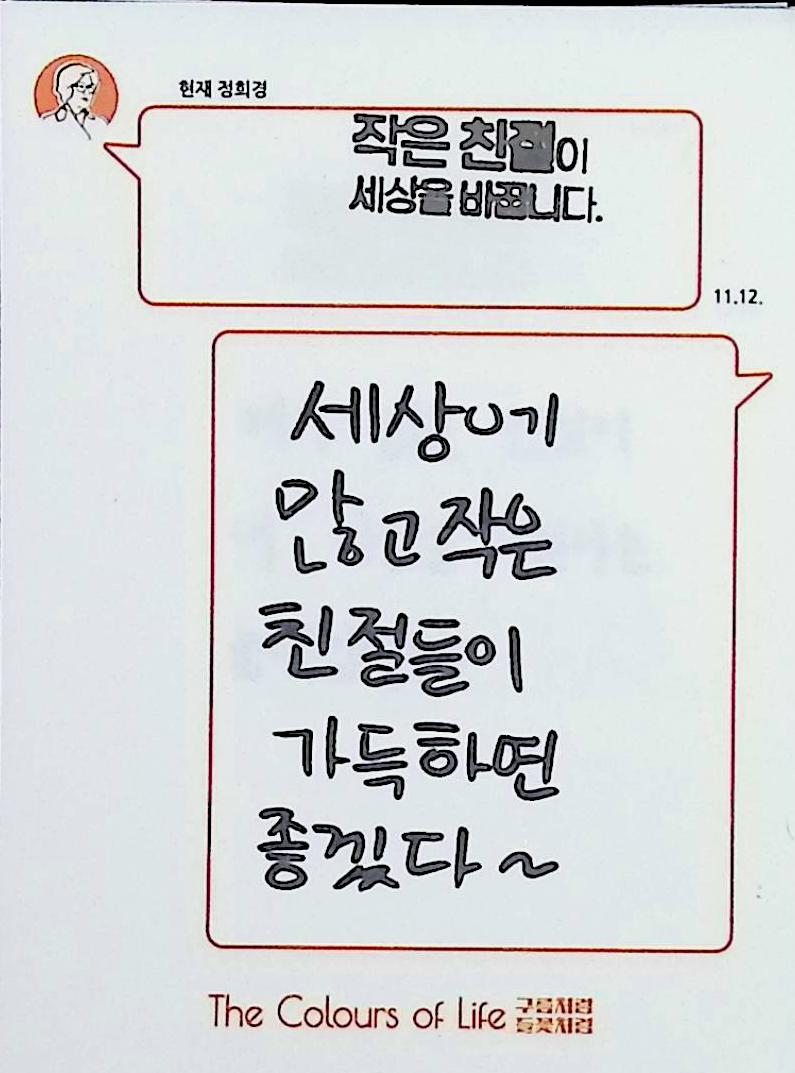 현재 정희경
작은 친절이
세상을 바꿉니다.
11.12.
세상
많고 작은
친절들이
가득하면
좋겠다 ~
The Colours of Life 구름처럼
들꽃처럼